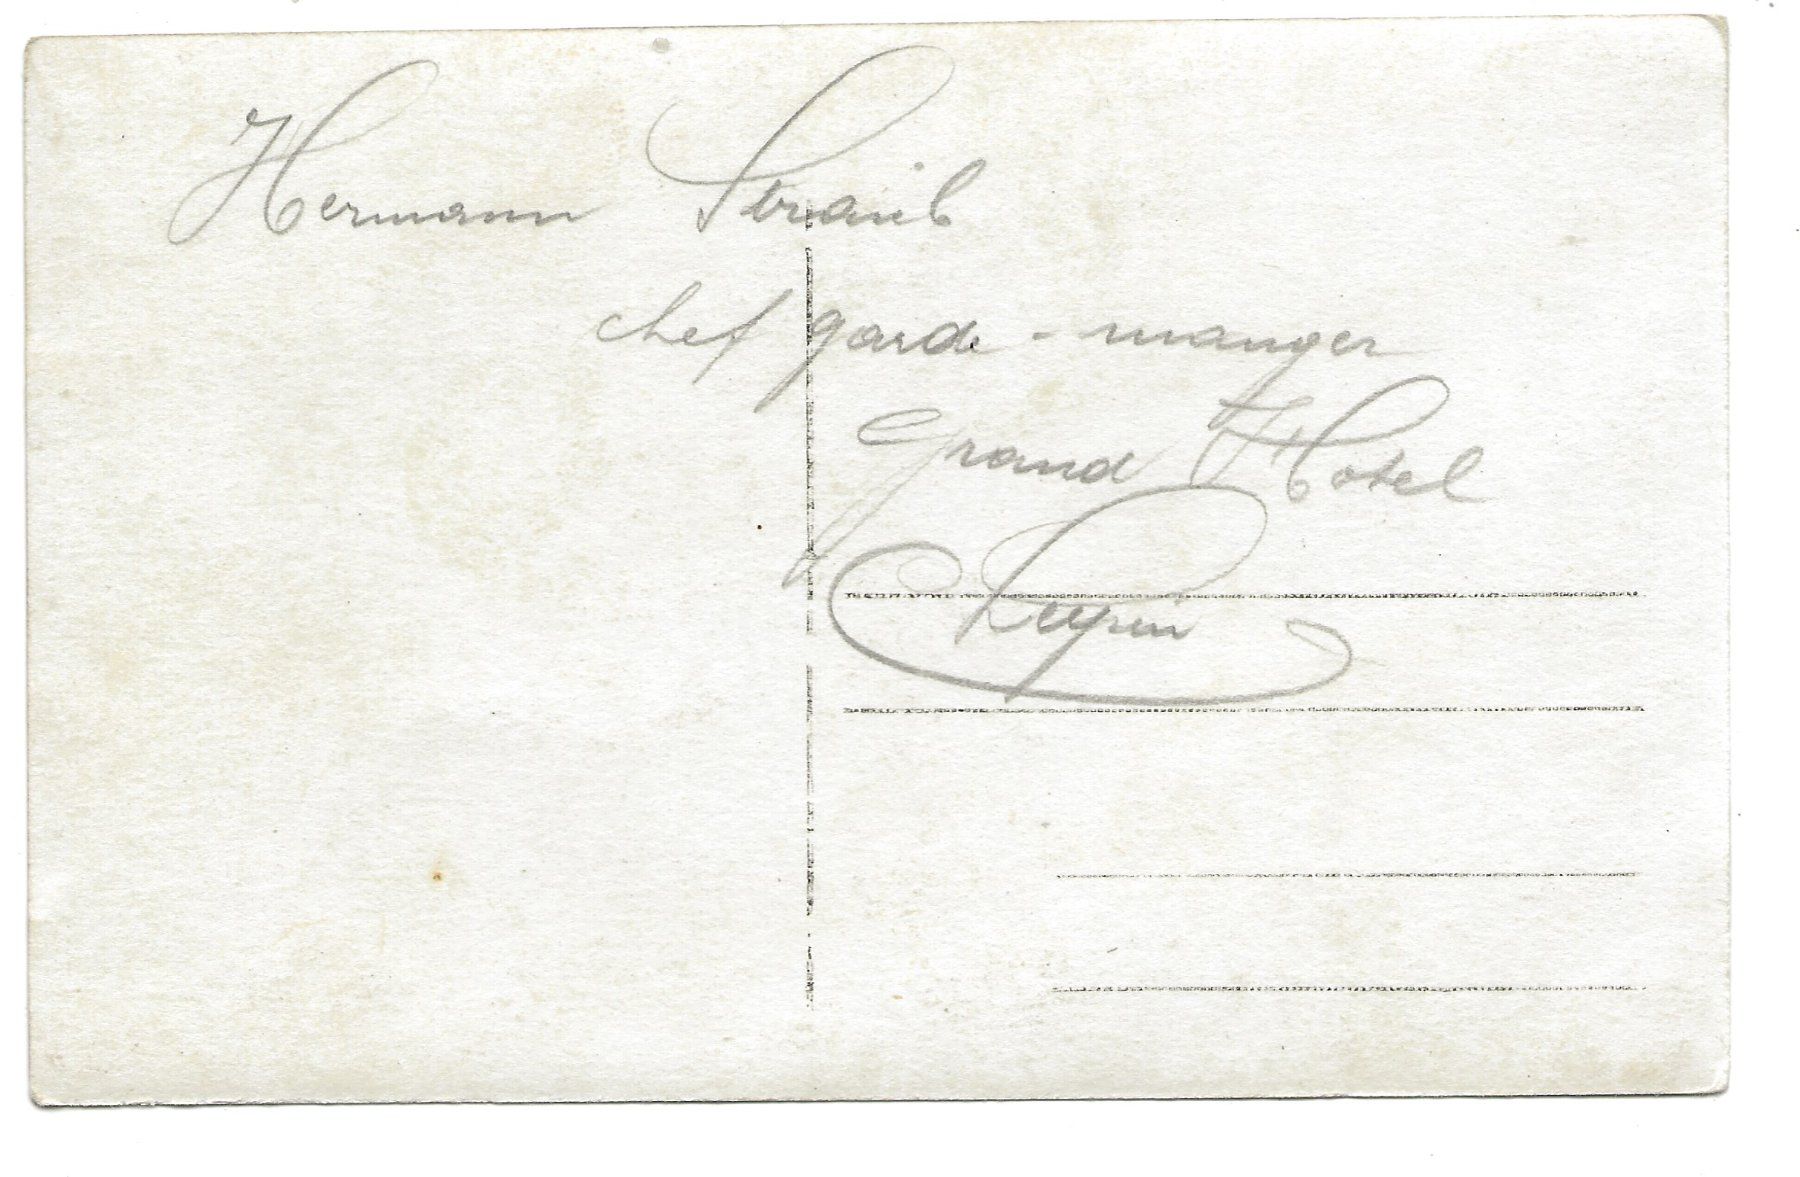 Hermann Straib
chef garde-manger
Grand Hotel
Leysin